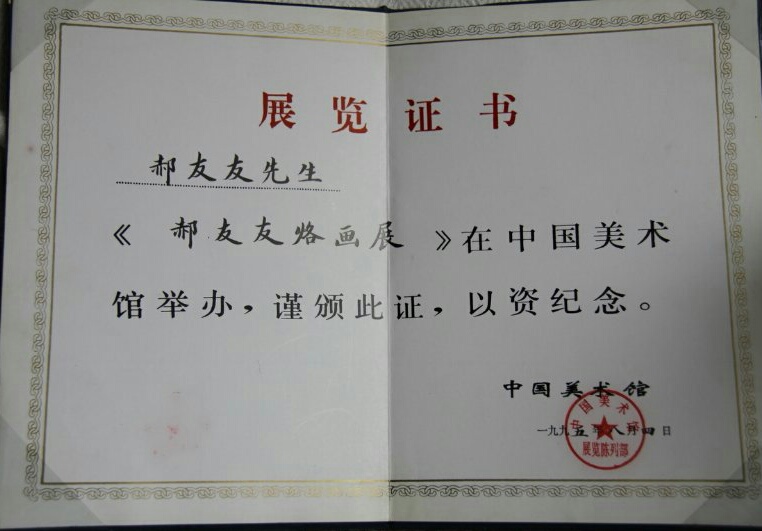 展览证书
郝友友先生
《郝友友烙画展》在中国美术
馆举办，谨颁此证，以资纪念。
中国美术馆
一九九五年八月四日
中国美术馆
展览陈列部